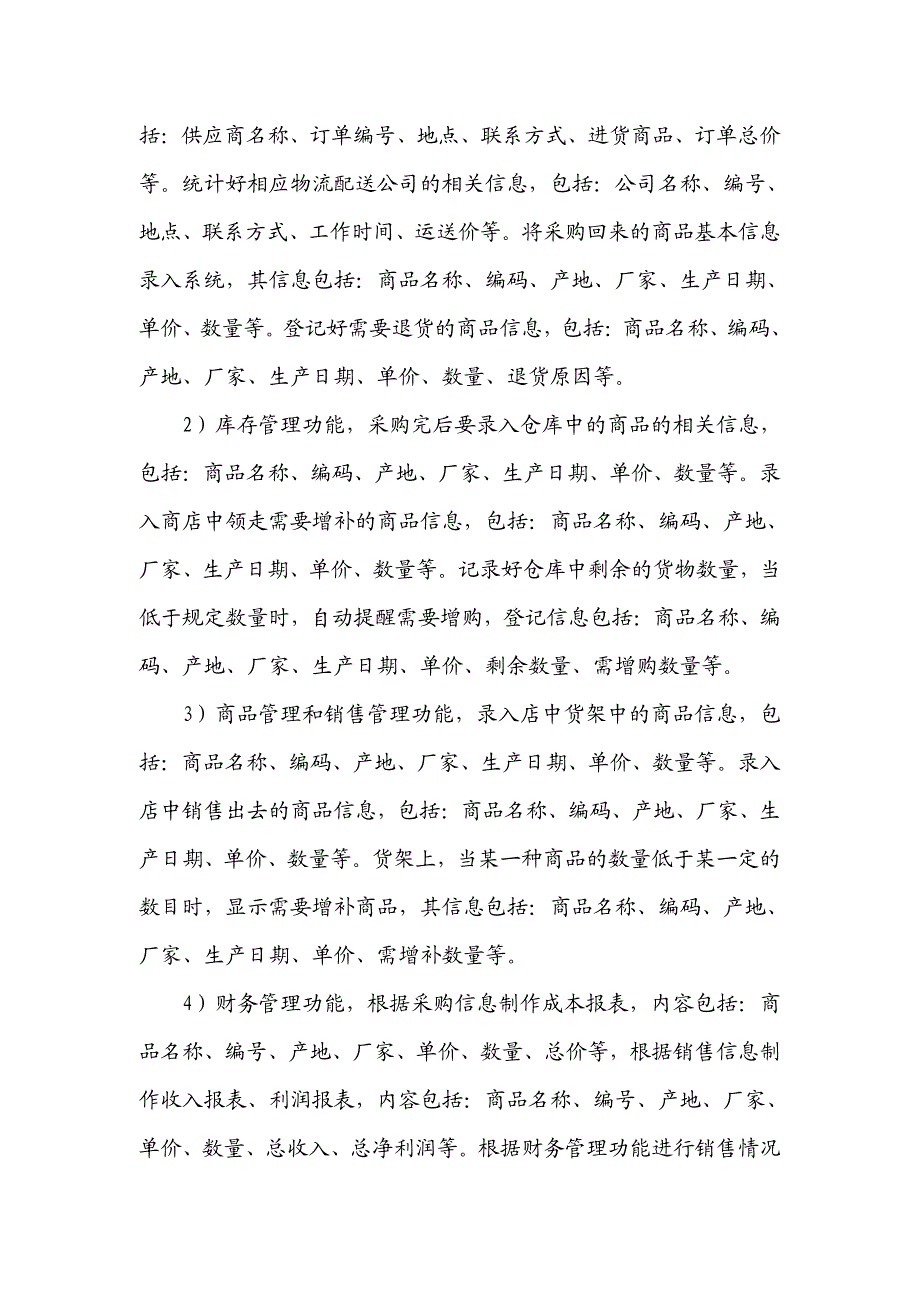 括：供应商名称、订单编号、地点、联系方式、进货商品、订单总价
等。统计好相应物流配送公司的相关信息，包括：公司名称、编号、
地点、联系方式、工作时间、运送价等。将采购回来的商品基本信息
录入系统，其信息包括：商品名称、编码、产地、厂家、生产日期、
单价、数量等。登记好需要退货的商品信息，包括：商品名称、编码、
产地、厂家、生产日期、单价、数量、退货原因等。
2）库存管理功能，采购完后要录入仓库中的商品的相关信息，
包括：商品名称、编码、产地、厂家、生产日期、单价、数量等。录
入商店中领走需要增补的商品信息，包括：商品名称、编码、产地、
厂家、生产日期、单价、数量等。记录好仓库中剩余的货物数量，当
低于规定数量时，自动提醒需要增购，登记信息包括：商品名称、编
码、产地、厂家、生产日期、单价、剩余数量、需增购数量等。
3）商品管理和销售管理功能，录入店中货架中的商品信息，包
括：商品名称、编码、产地、厂家、生产日期、单价、数量等。录入
店中销售出去的商品信息，包括：商品名称、编码、产地、厂家、生
产日期、单价、数量等。货架上，当某一种商品的数量低于某一定的
数目时，显示需要增补商品，其信息包括：商品名称、编码、产地、
厂家、生产日期、单价、需增补数量等。
4）财务管理功能，根据采购信息制作成本报表，内容包括：商
品名称、编号、产地、厂家、单价、数量、总价等，根据销售信息制
作收入报表、利润报表，内容包括：商品名称、编号、产地、厂家、
单价、数量、总收入、总净利润等。根据财务管理功能进行销售情况